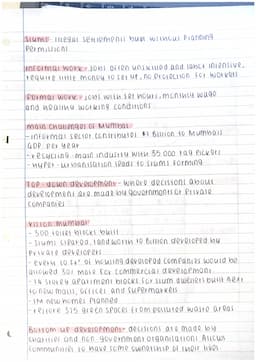 Slums - illegal settlements built without planning
permission
Informal work - jobs often unskilled and labor intensive,
require little money to set up, no protection for workers
Formal work - jobs with set hours, monthly wage
and healthy working conditions
Main challenges of Mumbai
- informal sector contributes $1 billion to Mumbai's
GDP per year
- recycling main industry with 35 000 rag pickers
- hyper-urbanisation leads to slums forming
Top-down development - where decisions about
development are made by governments or private
companies
Vision Mumbai
- 300 toilet blocks built
- slums cleared, land worth 10 billion developed by
private developers
- every 10 of housing developed companies would be
allowed sell more for commercial development
- 14 storey apartment blocks for slum dwellers built next
to new malls, offices and supermarkets
- 1M new homes planned
- restore 325 green spaces from polluted waste areas
Bottom up development - decisions are made by
charities and non-government organisations. Allows
communities to have some ownership of their lives